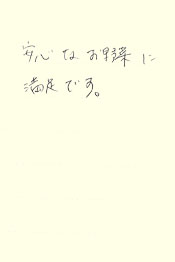 安心なお野菜に
満足です。